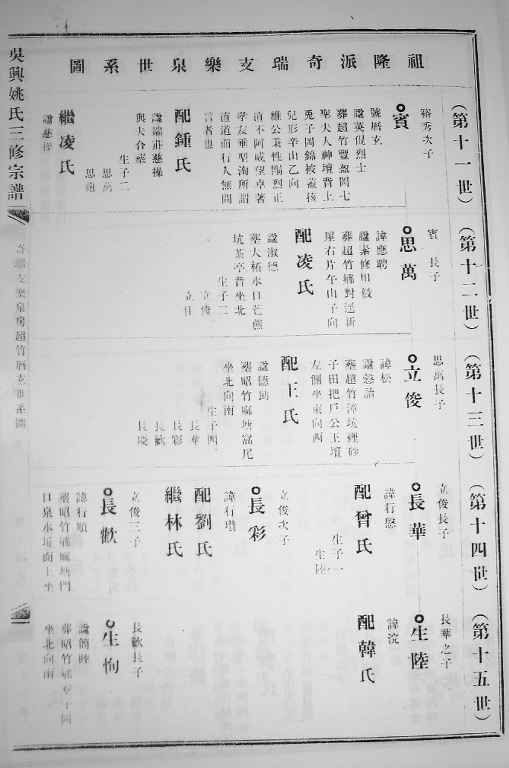 祖隆派奇瑞支樂泉世系圖
吳興姚氏三修宗譜
奇瑞支樂泉房超竹曆玄世系圖
(第十一世)
裕秀次子
賓
號曆玄
諡英侃烈士
葬超竹豐盈閣七
聖夫人神壇背上
兎子岡錦被蓋核
兒形辛山乙向
維公秉性剛烈正
直不阿咸望卓著
孝友垂型洵所謂
直道而行人無間
言者也
配鍾氏
諡端莊慈操
與夫合葬
生子二
思萬
思
繼凌氏
諡慈操
(第十二世)
賓長子
思萬
諱應聘
諡素修用毅
葬超竹墈對逕新
屋右片午山子向
配凌氏
諡淑德
葬大柘水口芒蕉
坑茶亭背坐北
生子二
立俊
立仕
(第十三世)
思萬長子
立俊
諱松
諡懿諧
葬超竹漳坑裡砂
子田把戶公王壇
左側坐東向西
配王氏
諡德助
葬昭竹麻塘窩尾
坐北向南
生子四
長華
長彩
長歡
長慶
(第十四世)
立俊長子
長華
諱行愍
配曾氏
生子一
生陸
立俊次子
長彩
諱行瓚
配劉氏
繼林氏
立俊三子
長歡
諱行順
葬昭竹墈麻塘門
口泉水坵面上坐
(第十五世)
長華之子
生陸
諱浣
配韓氏
長歡長子
生恂
諡簡睦
葬昭竹墈寨子岡
坐北向南